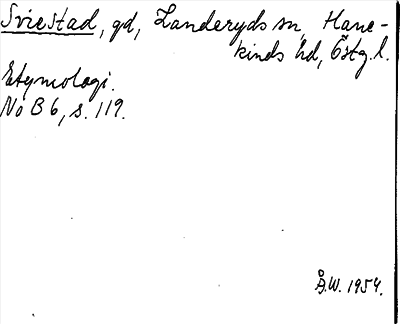 Sviestad, gd, Landeryds sn, Hane-
kinds hd, Östg. l.
Etymologi.
No B 6, s. 119.
Å.W. 1954.